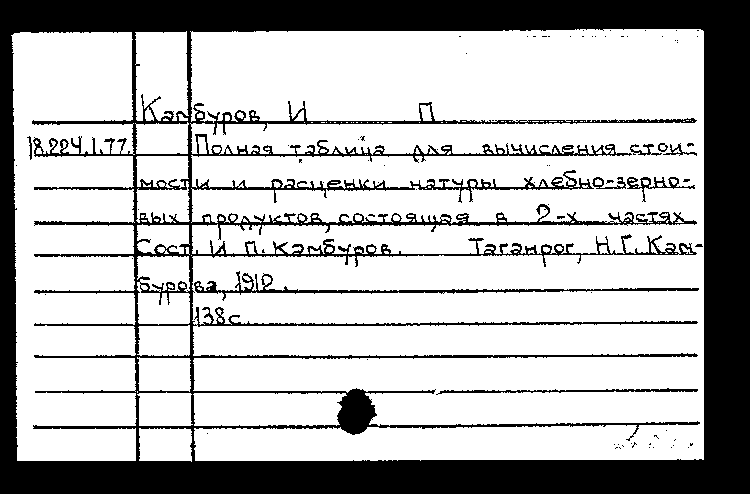 Камбуров, И П
18.224.1.77. Полная таблица для вычисления стои-
мости и расценки натуры хлебно-зерно-
вых продуктов, состоящая в 2-х частях
Сост. И. П. Камбуров. Таганрог, Н.Г. Кам-
бурова, 1912.
138с.